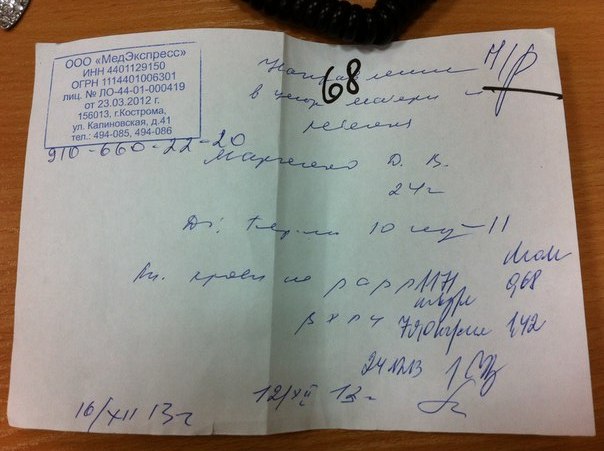 ООО «МедЭкспресс»
ИНН 4401129150
ОГРН 1114401006301
лиц. № ЛО-44-01-000419
от 23.03.2012 г.
156013, г.Кострома,
ул. Калиновская, д.41
тел.: 494-085, 494-086
Направление
68
в центр матери и
ребенка
910-660-22-20
Д. В.
24 г
Ds: 10 нед-11
Ан. крови на papp 1171 0,68
β хгч 1,42
24 XII 13
12/XII 13 г
16/XII 13 г